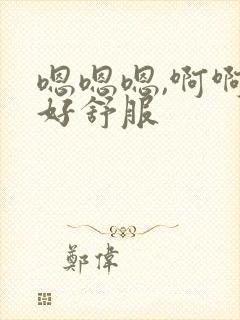 嗯嗯嗯,啊啊
好舒服
鄭偉